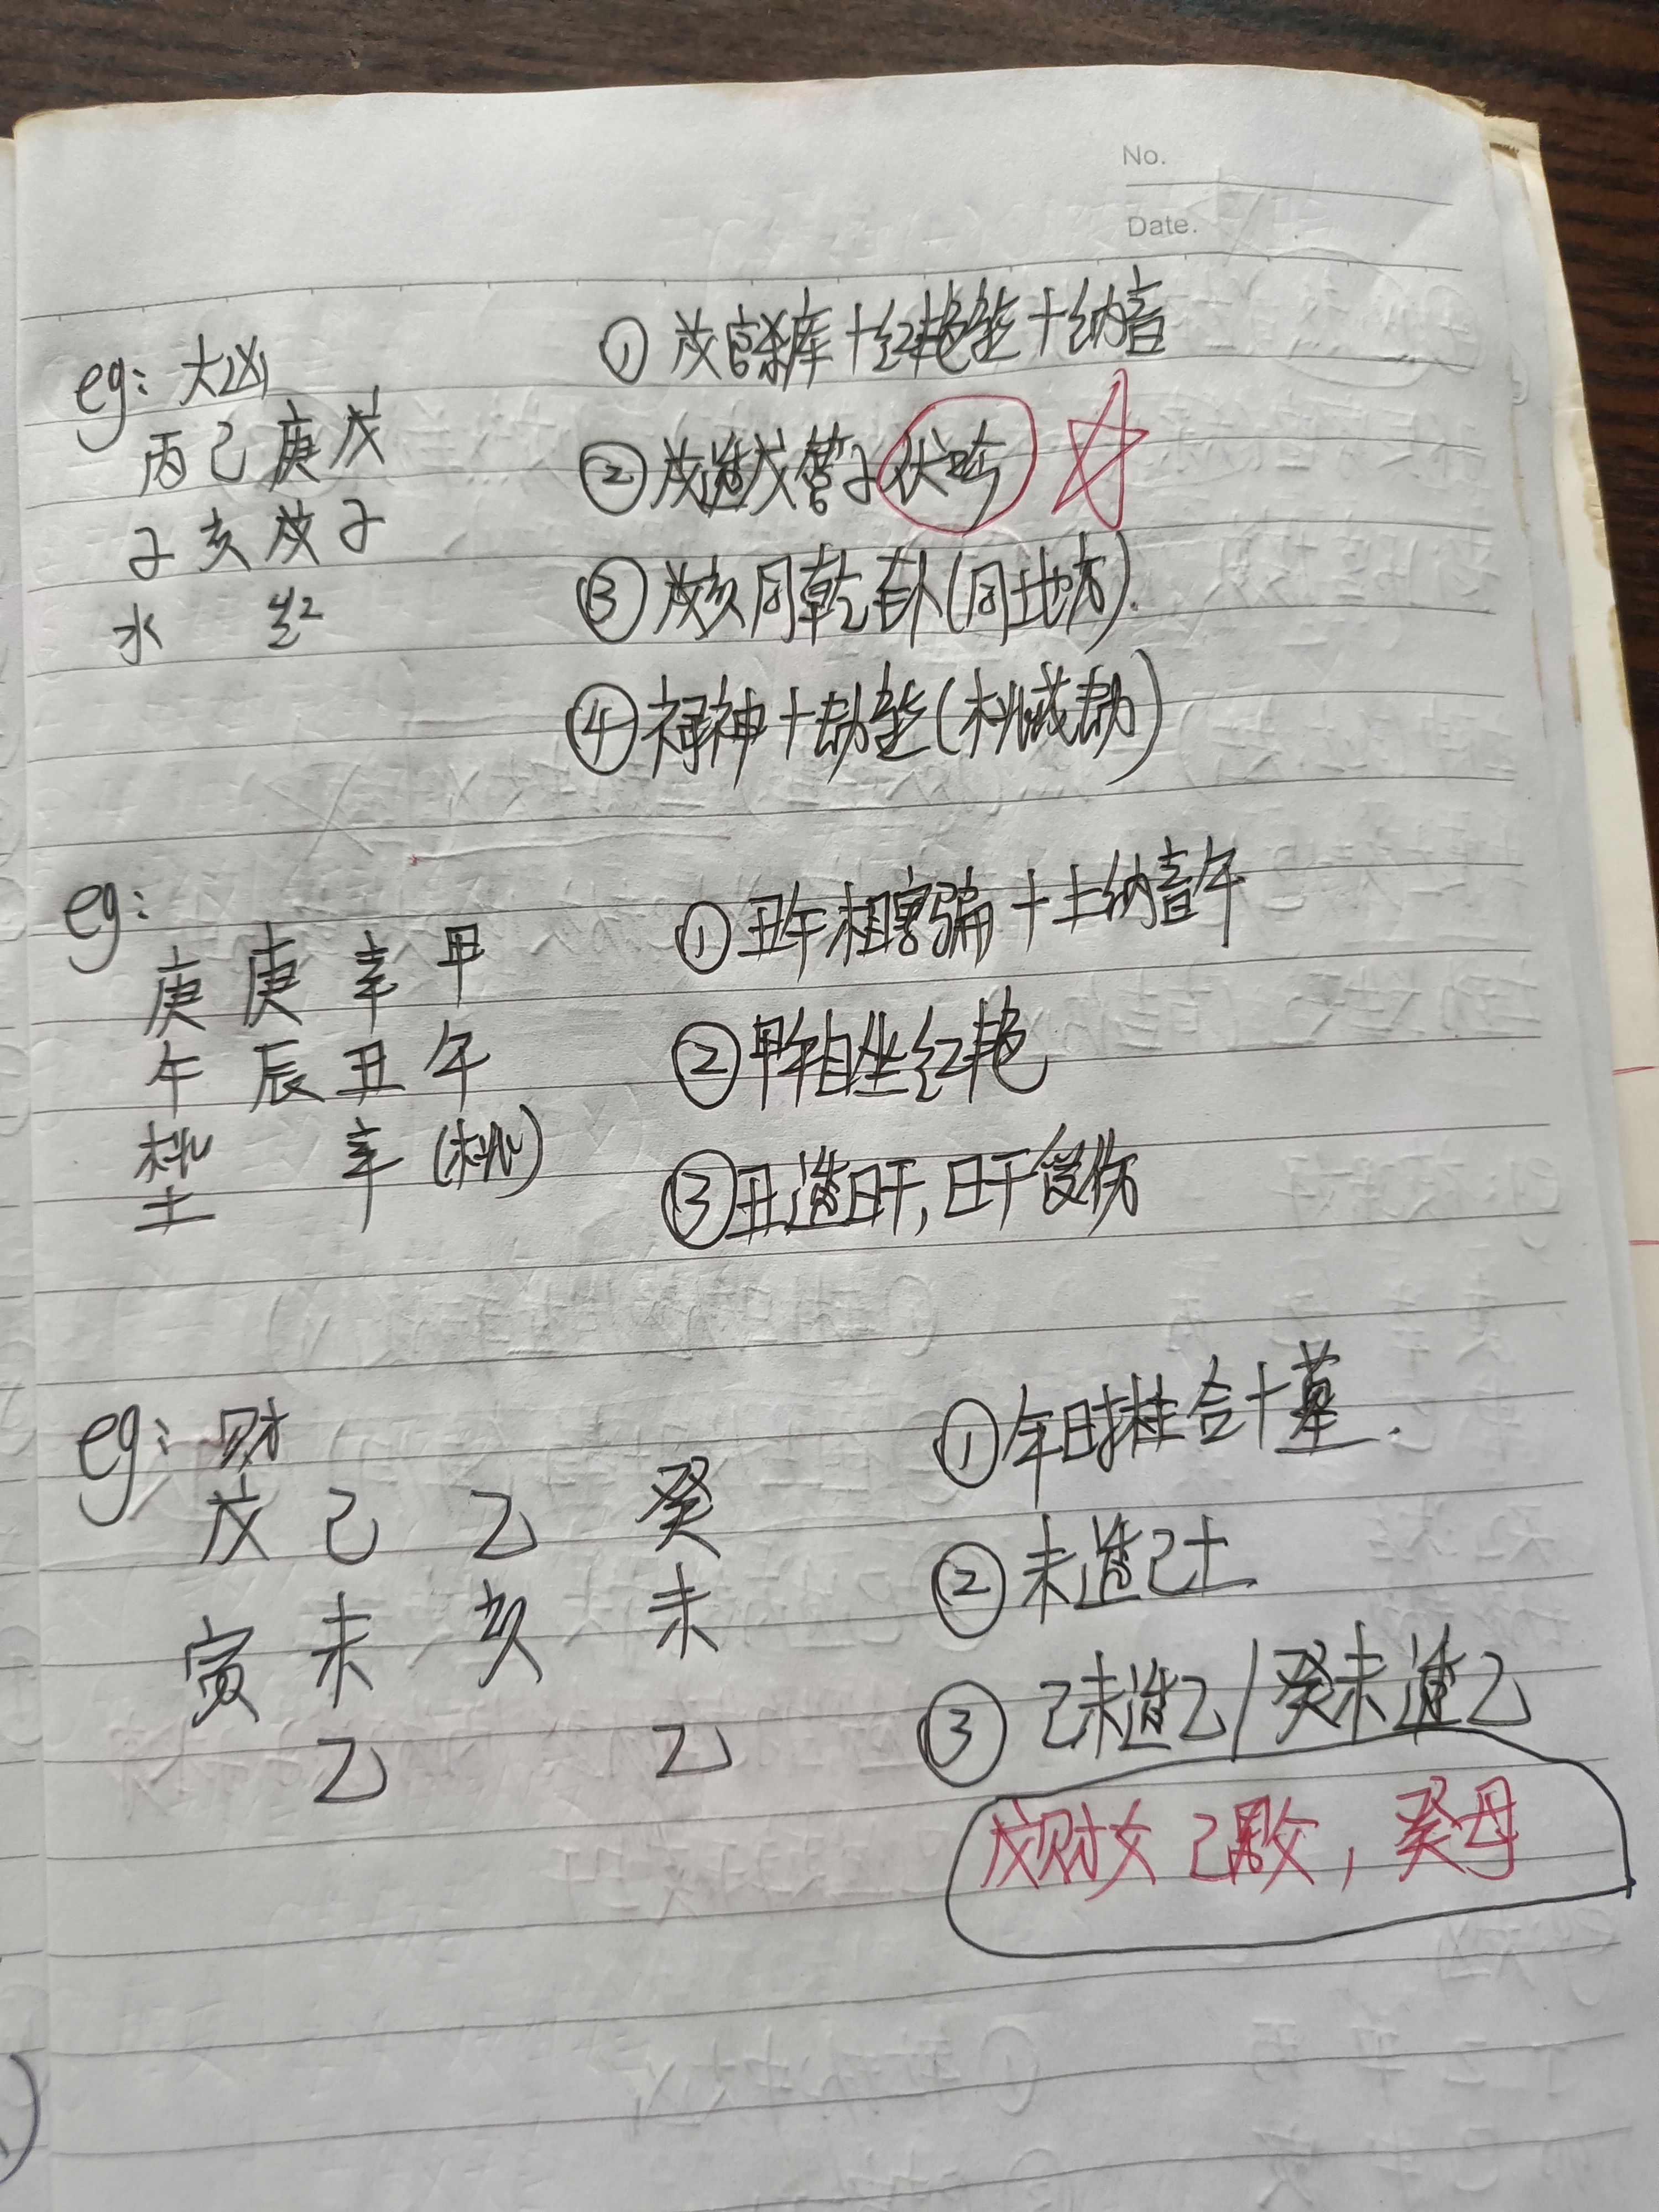 No.
Date.
eg: 大凶
丙己庚戊
子亥戌子
水 红
① 戌官杀库+红艳煞+纳音
② 戌造戊管子伏吟
③ 戌亥同乾卦(同地方).
④ 禄神+劫煞(桃或劫)
eg:
庚庚辛甲
午辰丑午
桃 辛 (桃)
土
① 丑午相害骗+土纳音午
② 甲午自坐红艳
③ 丑造日干,日干受伤
eg: 财
戊 己 乙 癸
寅 未 亥 未
乙 乙
① 年时柱合+墓.
② 未造己土
③ 己未造乙/癸未造乙
戊财女 己男父, 癸母